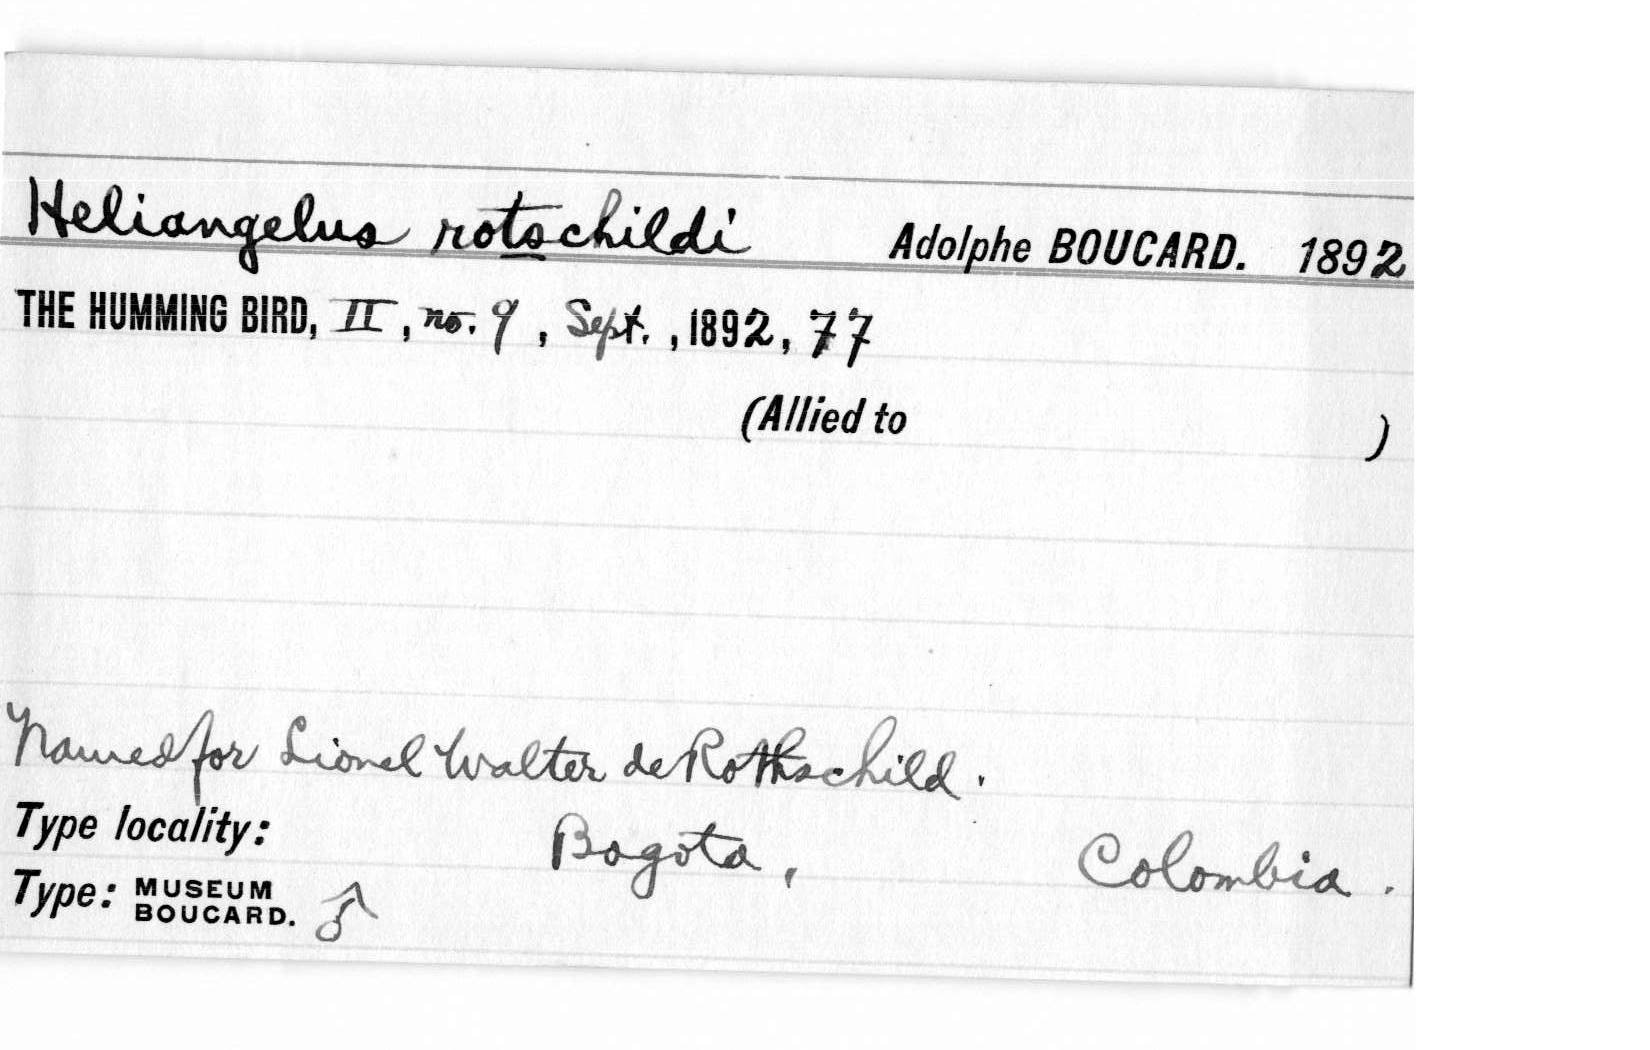 Heliangelus rotschildi Adolphe BOUCARD. 1892
THE HUMMING BIRD, II, no. 9, Sept., 1892, 77
(Allied to )
Named for Lionel Walter de Rothschild.
Type locality: Bogota, Colombia.
Type: MUSEUM BOUCARD. ♂